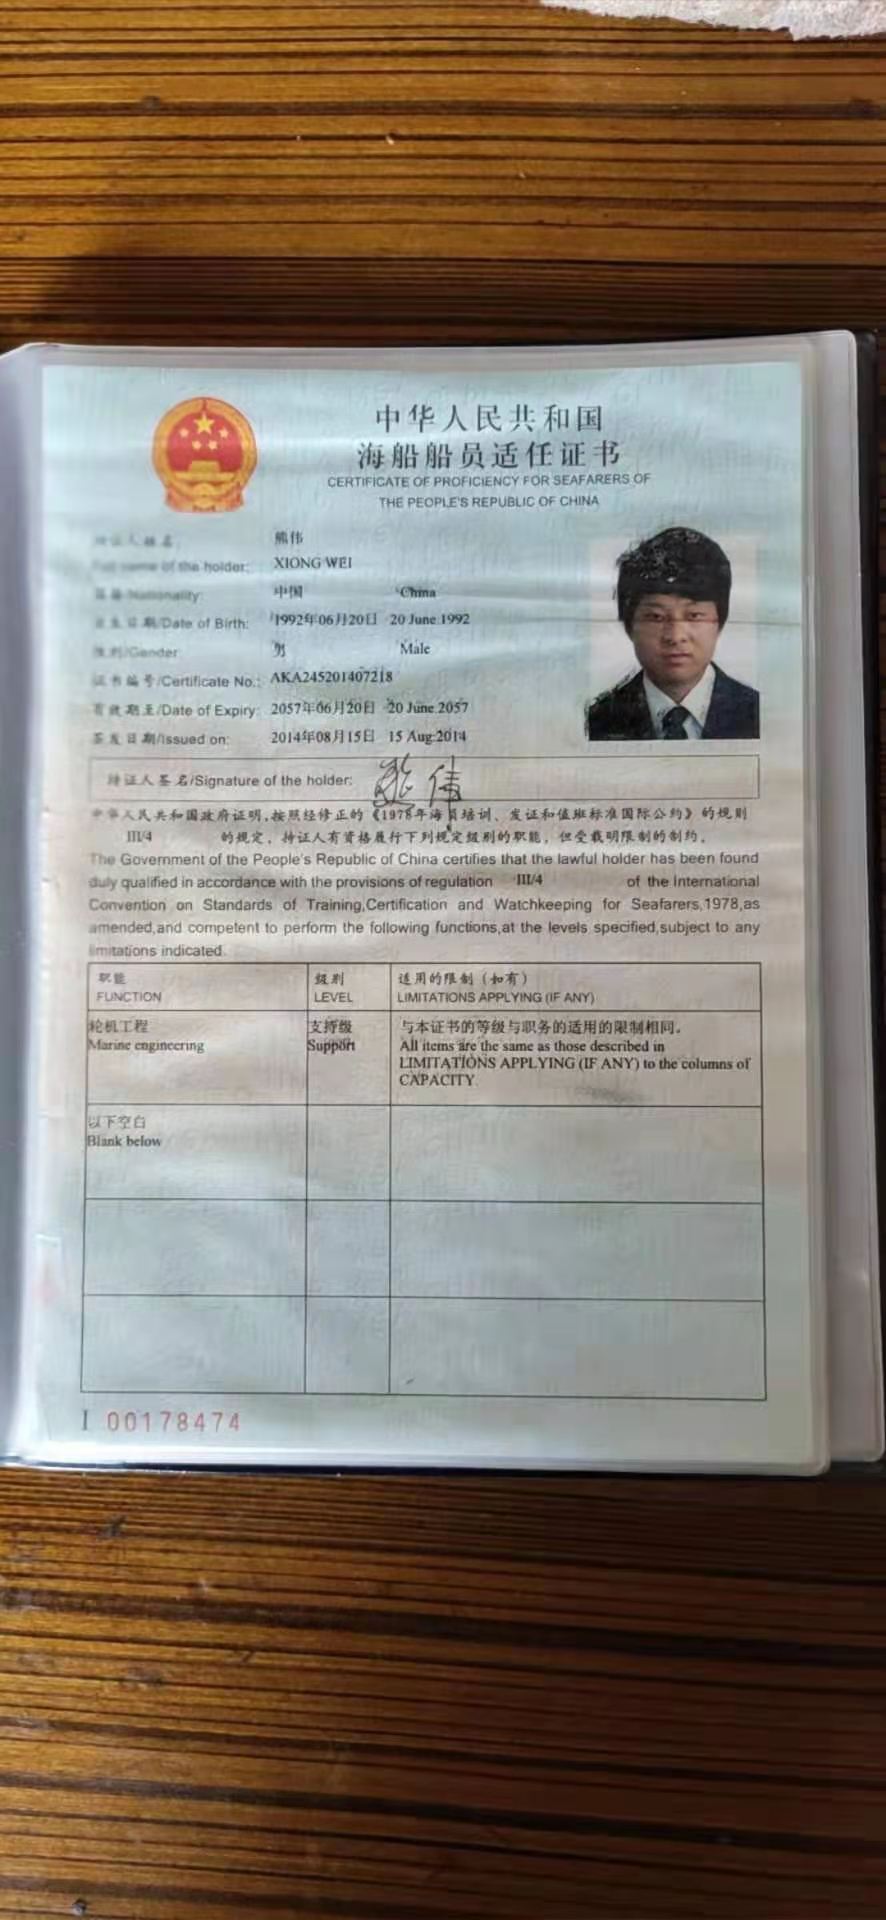 中华人民共和国
海船船员适任证书
CERTIFICATE OF PROFICIENCY FOR SEAFARERS OF
THE PEOPLE'S REPUBLIC OF CHINA
持证人姓名: 熊伟
Full name of the holder: XIONG WEI
国籍/Nationality: 中国 China
出生日期/Date of Birth: 1992年06月20日 20 June 1992
性别/Gender: 男 Male
证书编号/Certificate No.: AKA245201407218
有效期至/Date of Expiry: 2057年06月20日 20 June 2057
签发日期/Issued on: 2014年08月15日 15 Aug 2014
持证人签名/Signature of the holder: 熊伟
中华人民共和国政府证明,按照经修正的《1978年海员培训、发证和值班标准国际公约》的规则
III/4 的规定,持证人有资格履行下列规定级别的职能,但受载明限制的制约。
The Government of the People's Republic of China certifies that the lawful holder has been found
duly qualified in accordance with the provisions of regulation III/4 of the International
Convention on Standards of Training,Certification and Watchkeeping for Seafarers,1978,as
amended,and competent to perform the following functions,at the levels specified,subject to any
limitations indicated.
职能 级别 适用的限制（如有）
FUNCTION LEVEL LIMITATIONS APPLYING (IF ANY)
轮机工程 支持级 与本证书的等级与职务的适用的限制相同。
Marine engineering Support All items are the same as those described in
LIMITATIONS APPLYING (IF ANY) to the columns of
CAPACITY.
以下空白
Blank below
I 00178474